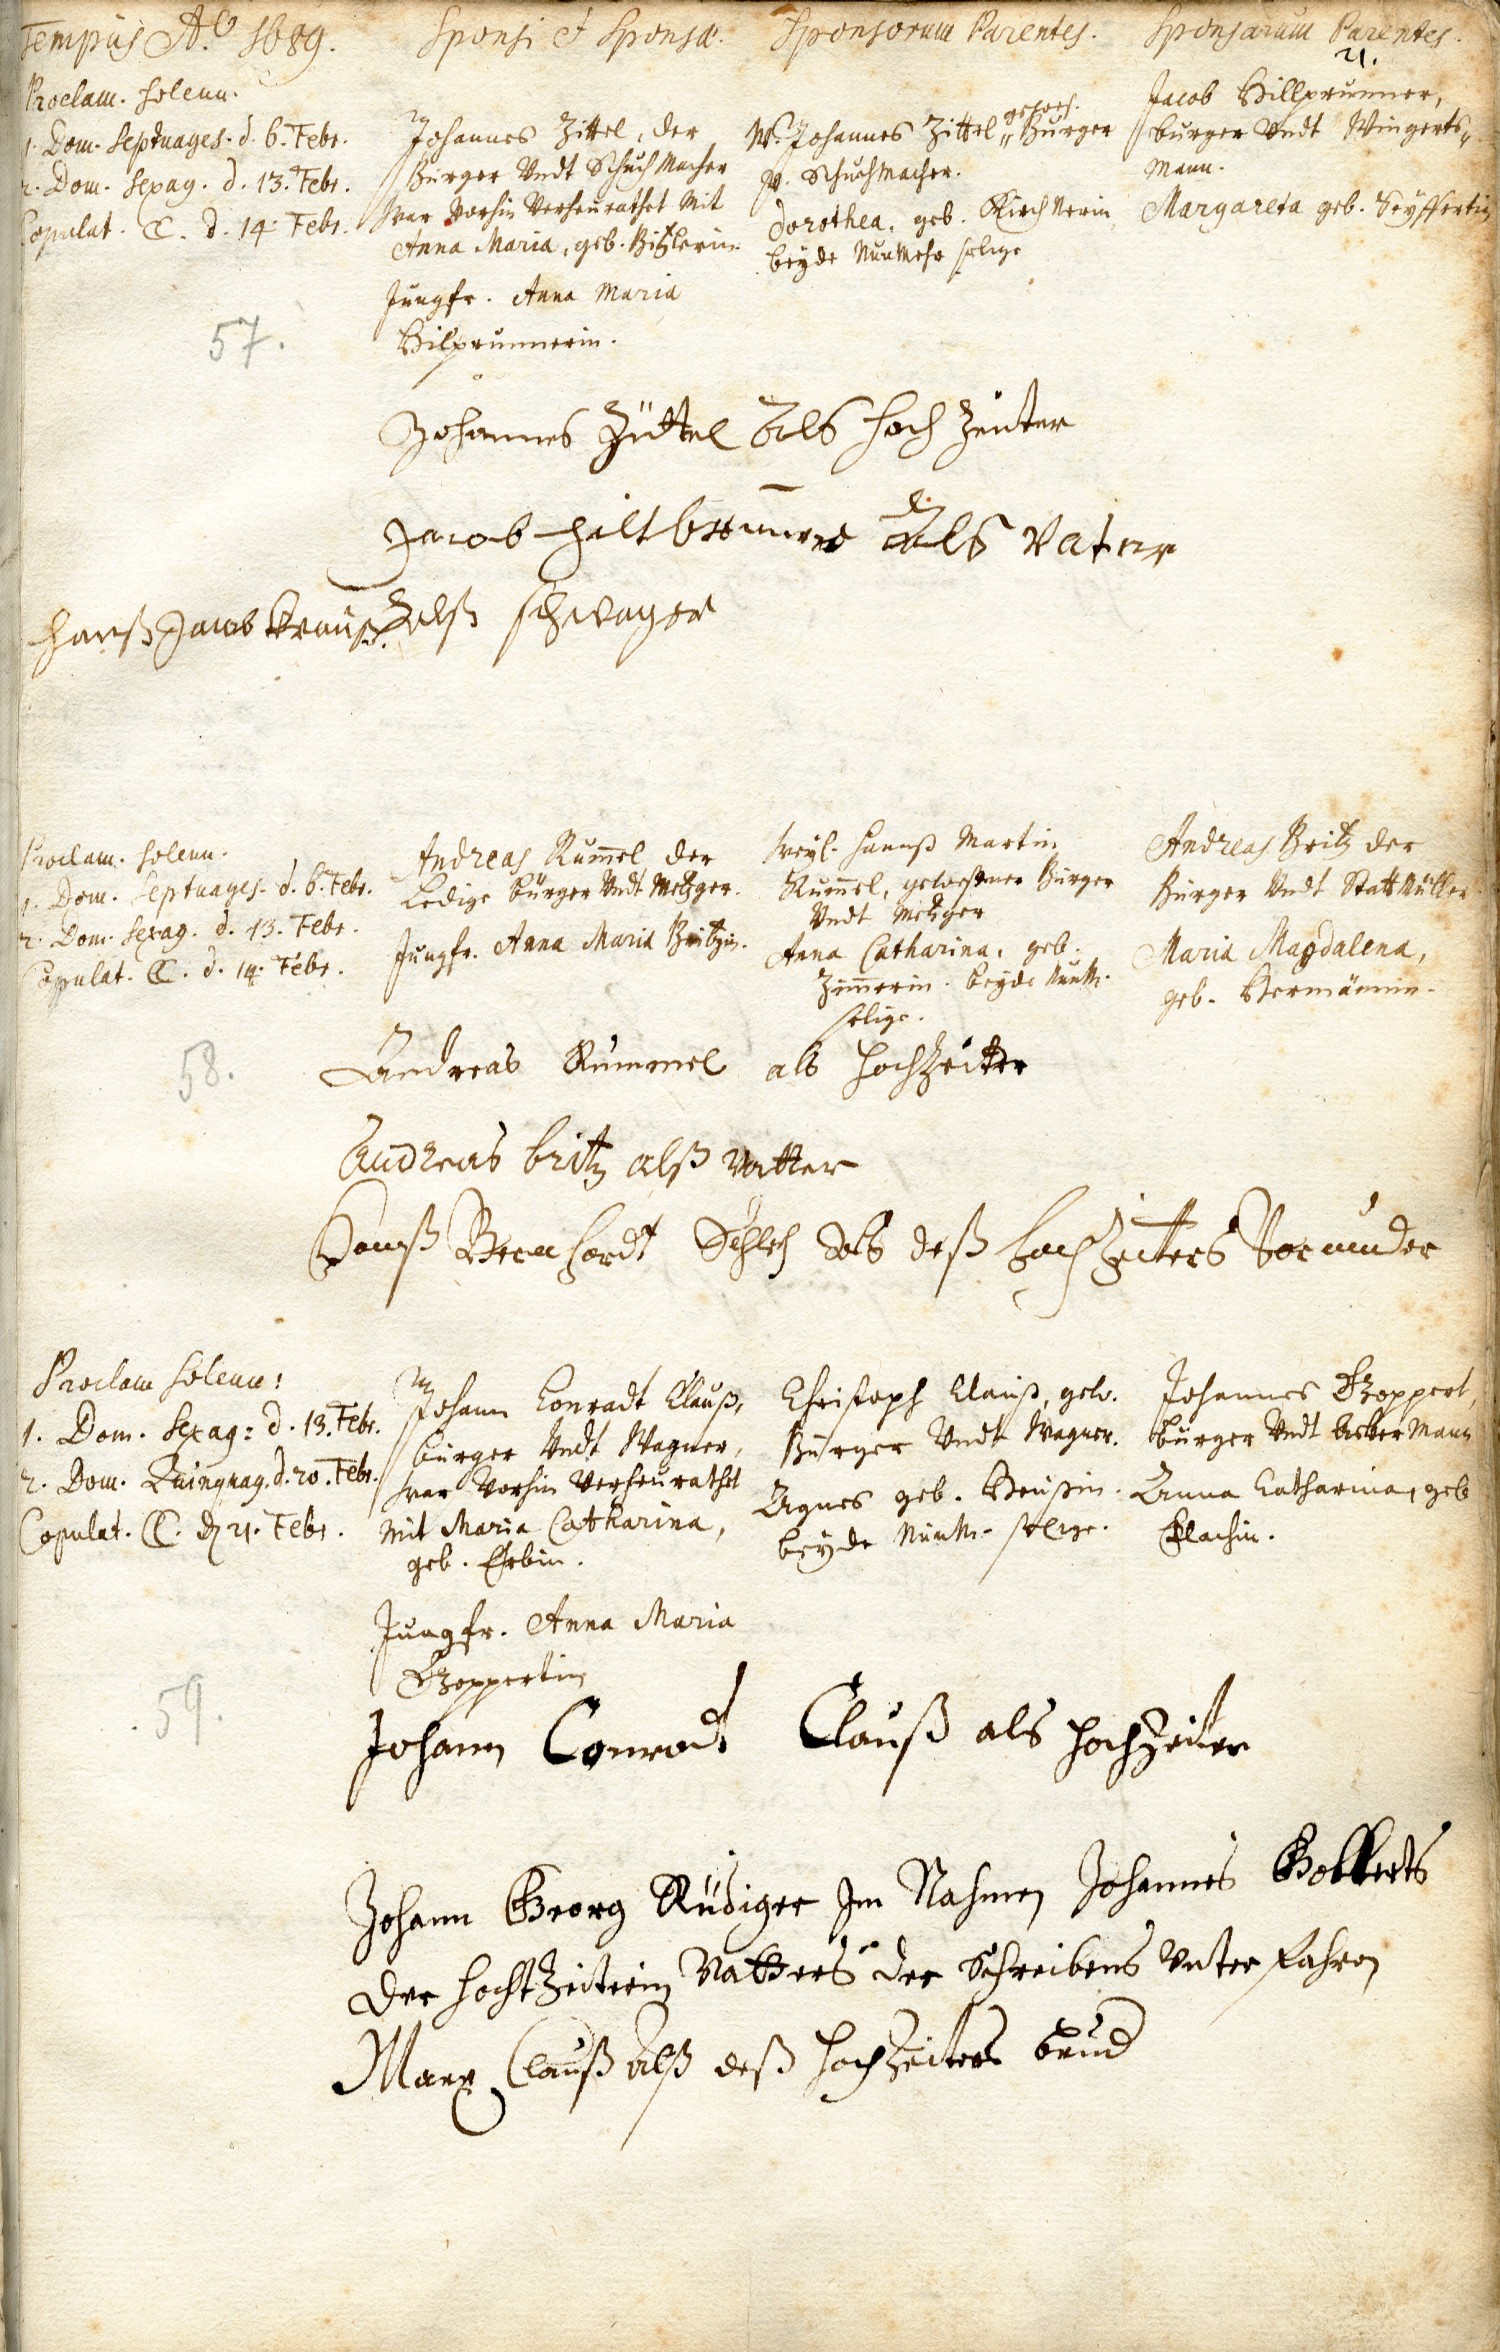 Tempus Ao. 1689.
Sponsi et Sponsæ.
Sponsorum Parentes.
Sponsarum Parentes.
21.
Proclam. solenn.
1. Dom. Septuages. d. 6. Febr.
2. Dom. Sexag. d. 13. Febr.
Copulat. d. 14. Febr.
57.
Johannes Zittel, der
Burger Undt Schuch Macher
war Vorhin Verheurathet Mit
Anna Maria, geb. Bitzlerin
Jungfr. Anna Maria
Hilprunnerin.
W. Johannes Zittel gewes. Burger
v. Schuchmacher.
Dorothea, geb. Kirchnerin
beyde NunMehr selige
Jacob Hillprunner,
burger Undt Wingerts-
Mann.
Margareta geb. Seyffertin
Johannes Züttel Als hoch Zeuter
Jacob hiltbrunner als Vater
hanß Jacob Krauß. Alß schwager
Proclam. solenn.
1. Dom. Septuages. d. 6. Febr.
2. Dom. Sexag. d. 13. Febr.
Copulat. d. 14. Febr.
58.
Andreas Rum̄el der
Ledige bürger Undt Metzger.
Jungfr. Anna Maria Britzin.
Weyl. Hannß Martin
Rum̄el, gewesener Burger
Undt Metzger
Anna Catharina, geb.
Zim̄erin. beyde NunM.
selige.
Andreas Britz der
Burger Undt StattMüller
Maria Magdalena,
geb. Hermännin.
Andreas Rummel als Hochzeitter
Andreas britz alß vatter
Hanß Bernhardt Als deß hoch Zeiters Vormunder
Proclam solenn:
1. Dom. Sexag: d. 13. Febr.
2. Dom. Quinquag. d. 20. Febr.
Copulat. d. 21. Febr.
59.
Johann Conradt Clauß,
burger Undt Wagner,
war Vorhin Verheurathet
mit Maria Catharina,
geb. Erbin.
Jungfr. Anna Maria
Goppertin
Christoph Clauß, gew.
Burger Undt Wagner.
Agnes geb. Heußin.
beyde NunM. selige.
Johannes Goppert,
burger Undt Acker Mann
Anna Catharina, geb
Johann Conradt Clauß als hochzeiter
Johann Georg Rüdiger Im Nahmen Johannes Gobberts
der hochtzeiterin Vatters der Schreibens Unter fahren
Marx Clauß alß deß hochzeiters brud